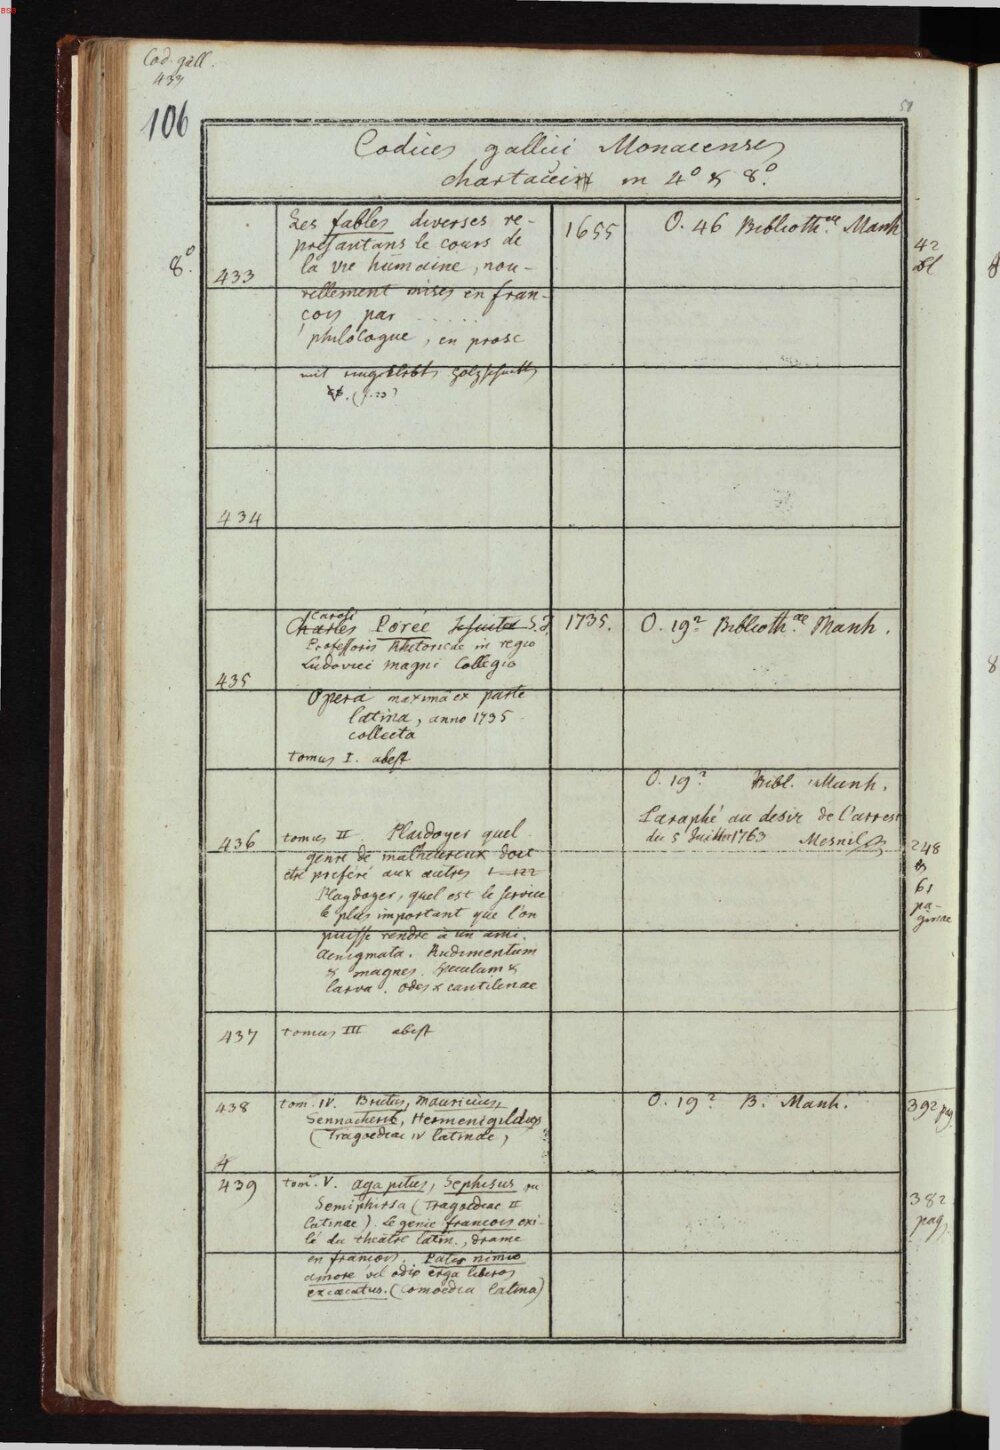 BSB
Cod. gall.
433
106
51
Codices gallici Monacenses
chartacei in 4° & 8°.
8°.
433
Les fables diverses re-
presantans le cours de
la vie humaine, nou-
vellement mises en fran-
çois par ......
philologue, en prose
mit
1655
O. 46 Biblioth.ae Manh
42
Bl
434
435
Caroli
Charles Porée Jesuitae S.J.
Professoris Rhetoricae in regio
Ludovici magni Collegio
Opera maxima ex parte
latina, anno 1735
collecta
tomus I. abest
1735.
O. 19? Biblioth.ae Manh.
436
tomus II. Plaidoyer quel
genre de malheureux doit
etre preferé aux autres 1—122
Playdoyer, quel est le service
le plus important que l'on
puisse rendre à un ami.
Aenigmata. Rudimentum
& magnes. Speculum &
larva. Odes & cantilenae
O. 19? Bibl. Manh.
Paraphé au desir de l'arrest
du 5 Juillet 1763 Mesnil
248
&
61
pa-
ginae
437
tomus III abest
438
tom. IV. Brutus, Mauricius,
Sennacherib, Hermenigildus
(Tragoediae IV latinae)
O. 19? B. Manh.
392 pag.
439
tom. V. Agapitus, Sephisus ou
Semiphirsa (Tragoediae II
latinae). Le genie françois exi-
lé du theatre latin, drame
en françois. Pater nimio
amore vel odio erga liberos
excaecatus. (Comoedia latina)
382
pag.